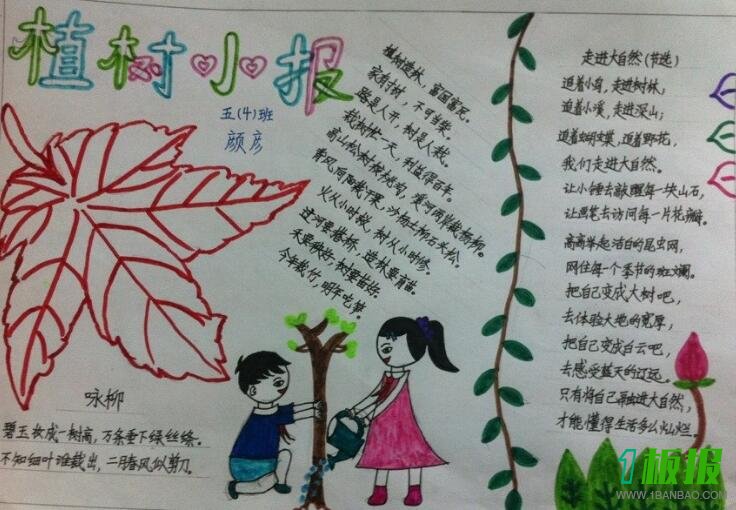 植树小报
五(4)班
颜彦
植树造林，富国富民。
家有寸材，不可当柴。
路是人开，树是人栽。
栽树忙一天，利益得百年。
高山松树核桃沟，溪河两岸栽杨柳。
春风向阳栽下栗，沙杨土
火从小时救，树从小时修。
过河要搭桥，造林要育苗。
禾要秧好，树要苗好。
今年栽竹，明年吃笋。
走进大自然(节选)
追着小鸟，走进树林；
追着小溪，走进深山；
追着蝴蝶，追着野花，
我们走进大自然。
让小锤去敲醒每一块山石，
让画笔去访问每一片花瓣。
高高举起洁白的昆虫网，
网住每个季节的斑斓。
把自己变成大树吧，
去体验大地的宽厚，
把自己变成白云吧，
去感受蓝天的辽远。
只有将自己融进大自然，
才能懂得生活多么灿烂。
咏柳
碧玉妆成一树高，万条垂下绿丝绦。
不知细叶谁裁出，二月春风似剪刀。
1板报
WWW.1BANBAO.COM